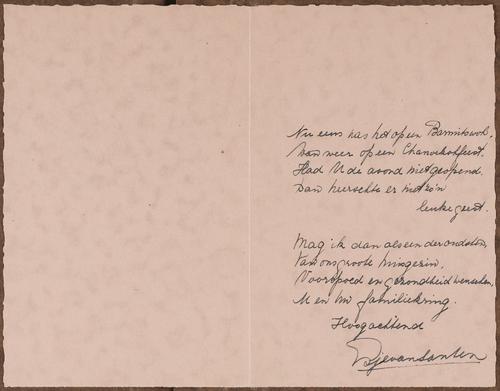 Nu eens was het op een Barmitswoh,
Dan weer op een Chanoekahfeest.
Had U de avond niet gespend.
Dan heerschte er niet zo'n
leuke geest.
Mag ik dan als een der oudsten,
Van ons groote huisgezin,
Voorspoed en gezondheid wenschen,
U en Uw familiekring.
Hoogachtend
van Santen